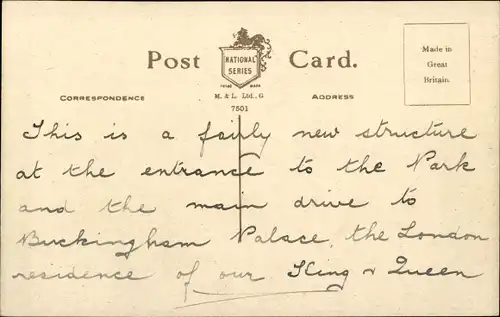 Post Card.
NATIONAL
SERIES
TRADE MARK
M. & L. Ltd., G
7501
Made in
Great
Britain.
CORRESPONDENCE
ADDRESS
This is a fairly new structure
at the entrance to the Park
and the main drive to
Buckingham Palace, the London
residence of our King & Queen